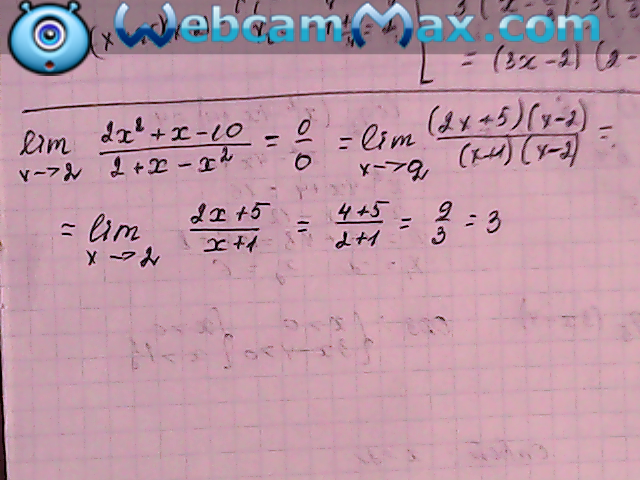 WebcamMax.com
= (3x-2)(2-
lim x→2 (2x²+x-10)/(2+x-x²) = 0/0 = lim x→2 ((2x+5)(x-2))/((x+1)(x-2)) =
= lim x→2 (2x+5)/(x+1) = (4+5)/(2+1) = 9/3 = 3